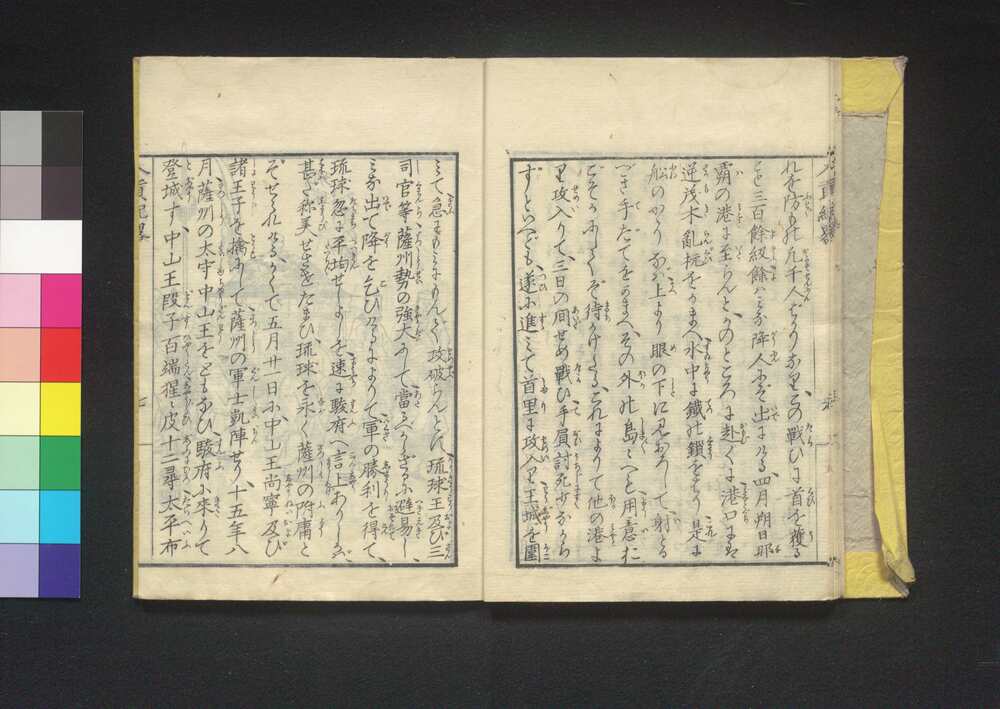 れを防もの凡千人ばかりなり、この戦ひに首を獲る
こと三百餘級餘はみな降人にぞ出にける、四月朔日那
覇の港に至らんとかのところに赴くに港口には
逆茂木亂杭をかまへ水中は鐵の鎖をはり是に
船のかゝりなば上より眼の下に見おろして、射とる
づき手だてをかまへ、その外の島々へも用意む
こそかふしてぞ待かけたる、これによりて他の港よ
り攻入りて、三日の間せめ戰ひ手負討死少なから
ずといへども、遂に進みて首里に攻入り王城を圍
みて、急にもみにもんで攻破らんとす、琉球王及び三
司官等薩州勢の強大にして當るべからざるに避易し、
みな出て降を乞ひけるによりて、軍の勝利を得て、
琉球忽に平均せしよしを速に駿府へ言上ありしかば、
甚だ称美せさせたまひ琉球を永く薩州の附庸と
ぞせられける、かくて五月廿一日に、中山王尚寧及び
諸王子を擒にして薩州の軍士凱陣せり、十五年八
月薩州の太守中山王をともなひ、駿府に來りて
登城す、中山王段子百端猩々皮十二尋太平布